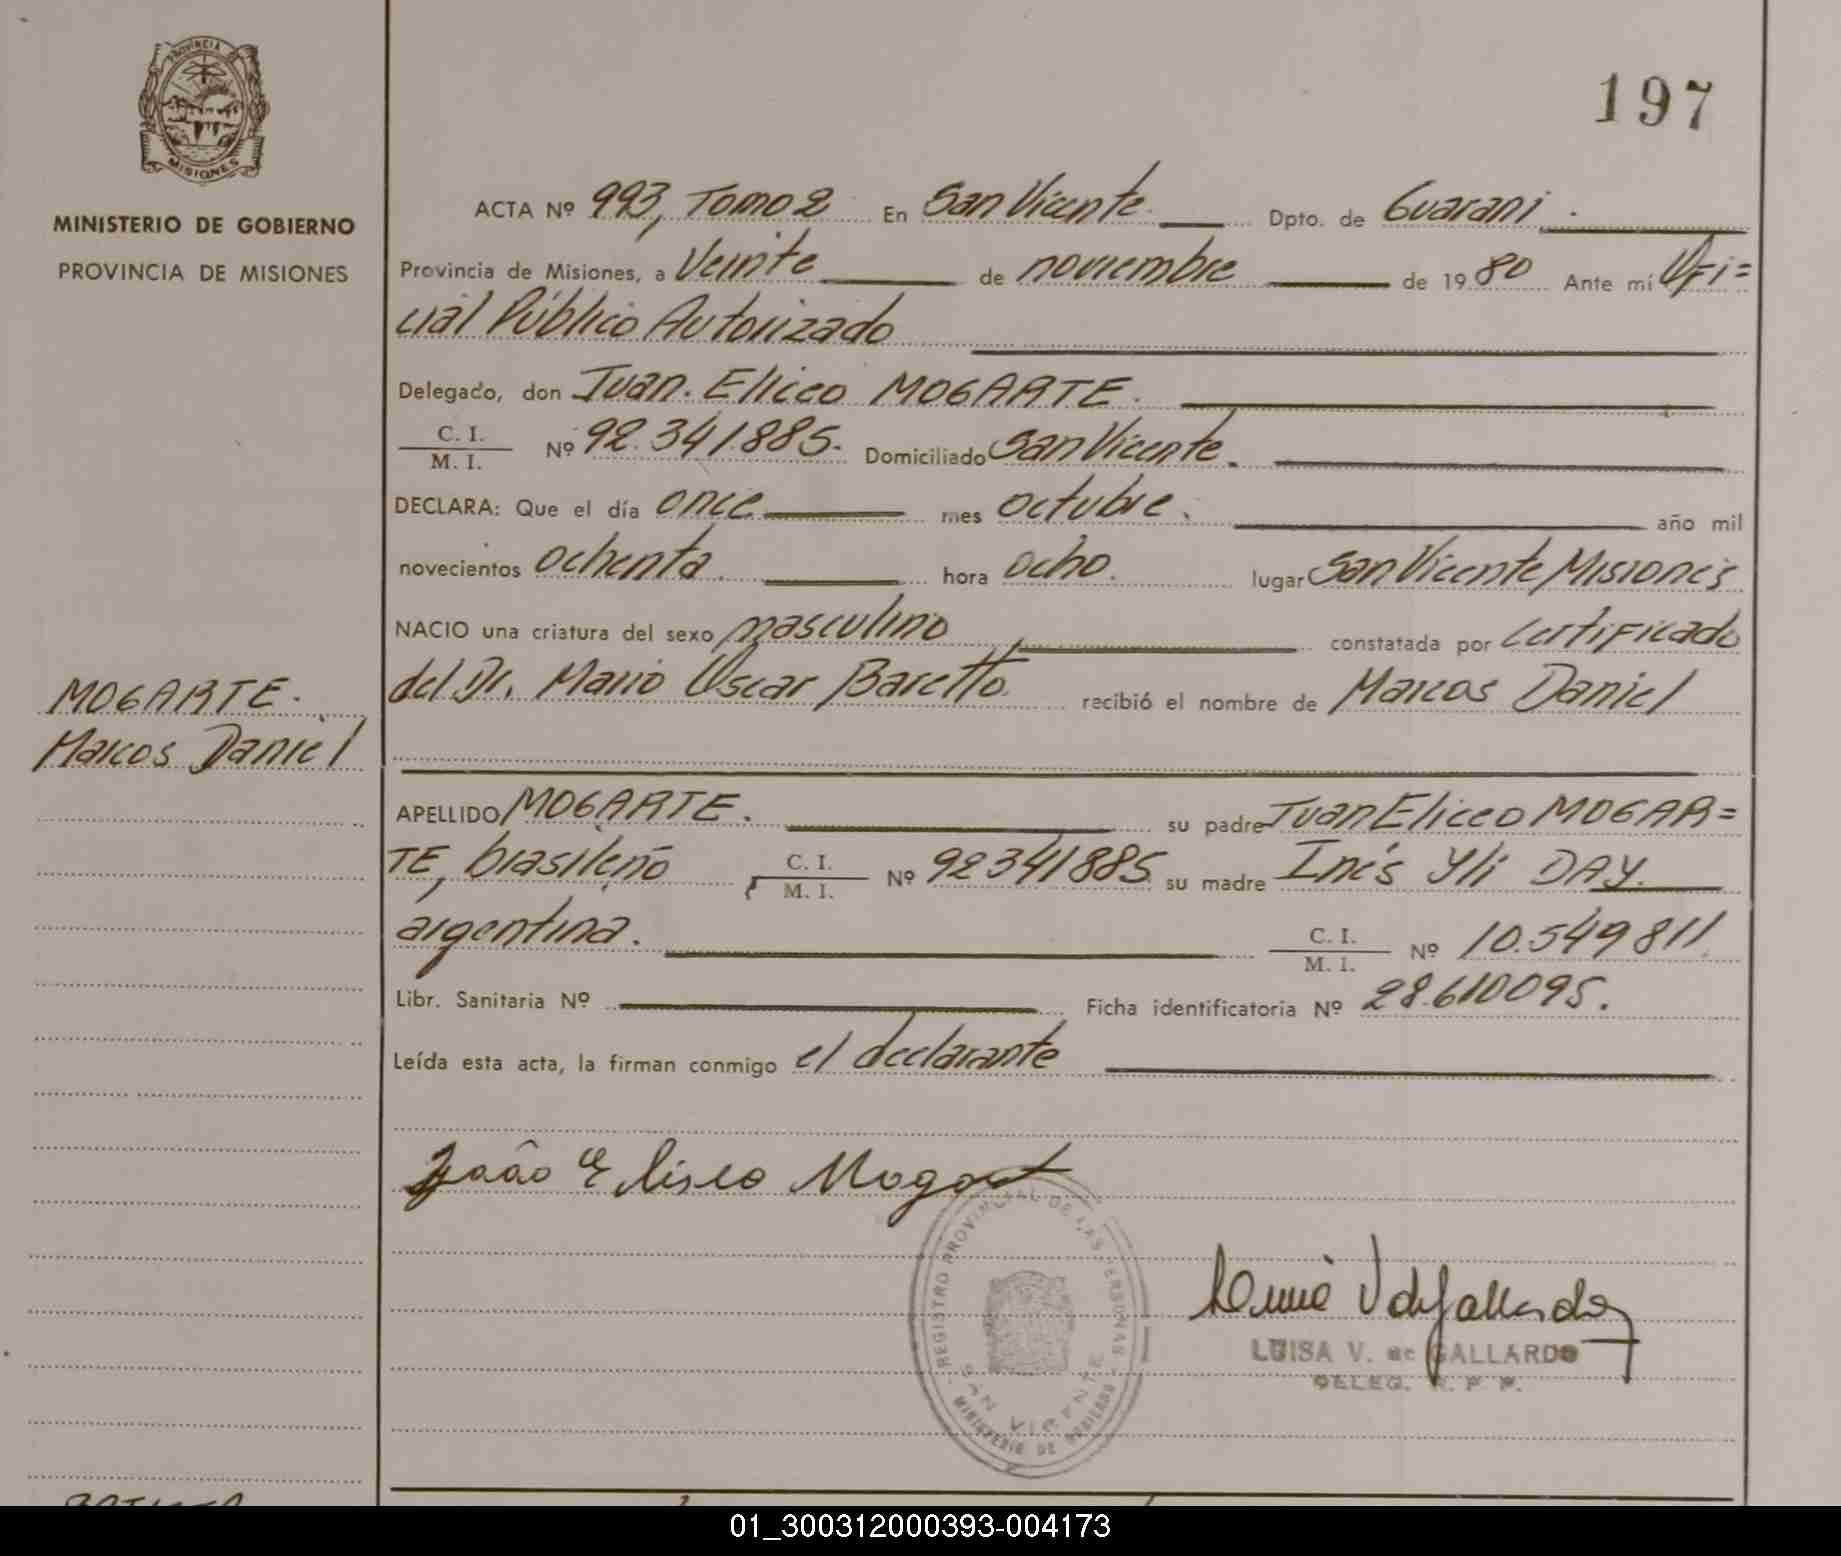 197
PROVINCIA
MISIONES
MINISTERIO DE GOBIERNO
PROVINCIA DE MISIONES
ACTA Nº 993, Tomo 2 En San Vicente. Dpto. de Guarani.
Provincia de Misiones, a Veinte de noviembre de 1980 Ante mí Ofi=
cial Público Autorizado
Delegado, don Juan. Eliceo MOGARTE.
C. I.
M. I. Nº 92.341.885. Domiciliado San Vicente.
DECLARA: Que el día once mes octubre. año mil
novecientos ochenta. hora ocho. lugar San Vicente Misiones
NACIO una criatura del sexo masculino constatada por certificado
del Dr. Mario Oscar Baretto. recibió el nombre de Marcos Daniel
MOGARTE.
Marcos Daniel
APELLIDO MOGARTE. su padre Juan Eliceo MOGAR=
TE, brasileño C. I.
M. I. Nº 92341885. su madre Inés Yli DAY.
argentina. C. I.
M. I. Nº 10.549811.
Libr. Sanitaria Nº Ficha identificatoria Nº 28.610095.
Leída esta acta, la firman conmigo el declarante
João Eliseo Mogart
REGISTRO PROVINCIAL DE LAS PERSONAS
SAN VICENTE
MINISTERIO DE GOBIERNO
LUISA V. de GALLARDO
DELEG. R. P. P.
01_300312000393-004173